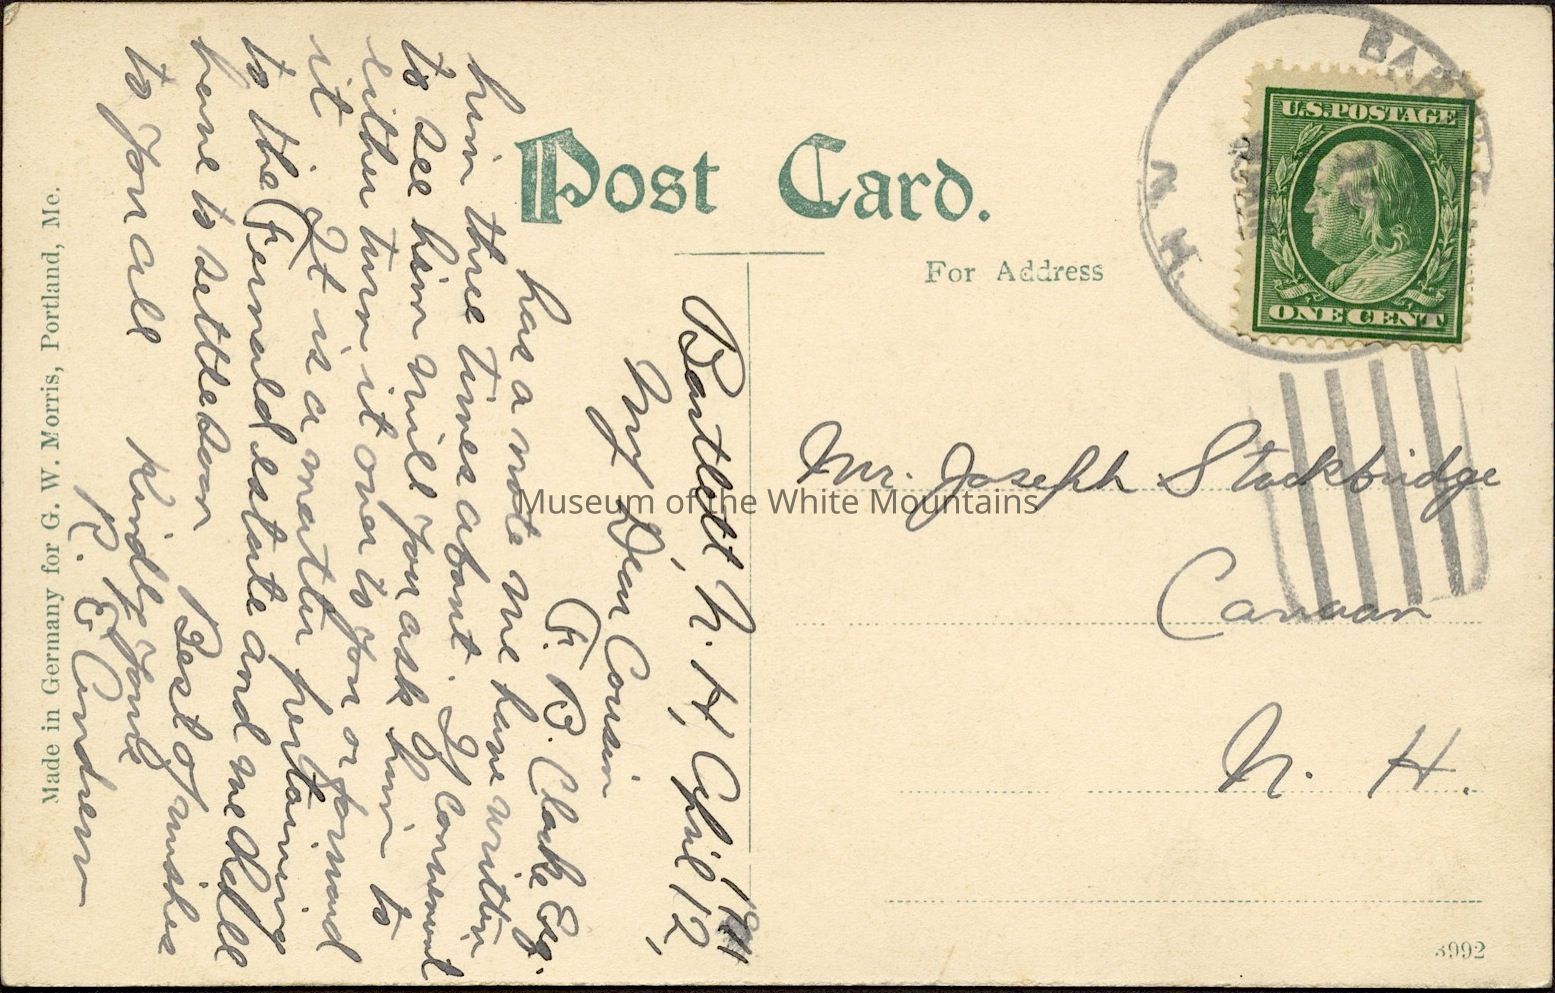 Post Card.
For Address
U.S. POSTAGE
ONE CENT
BARTLETT
N.H.
Mr. Joseph Stockbridge
Canaan
N. H.
Bartlett, N. H, April 12,
1911
My Dear Cousin
F. B. Clarke Esq.
has a note we have written
him three times about. If convenient
to see him will you ask him to
either turn it over to you or forward
it It is a matter pertaining
to the Fernald estate and we dall
have to settle soon
Best of wishes
to you all Kindly yours
R. E. Andrew
Made in Germany for G. W. Morris, Portland, Me.
3992
Museum of the White Mountains